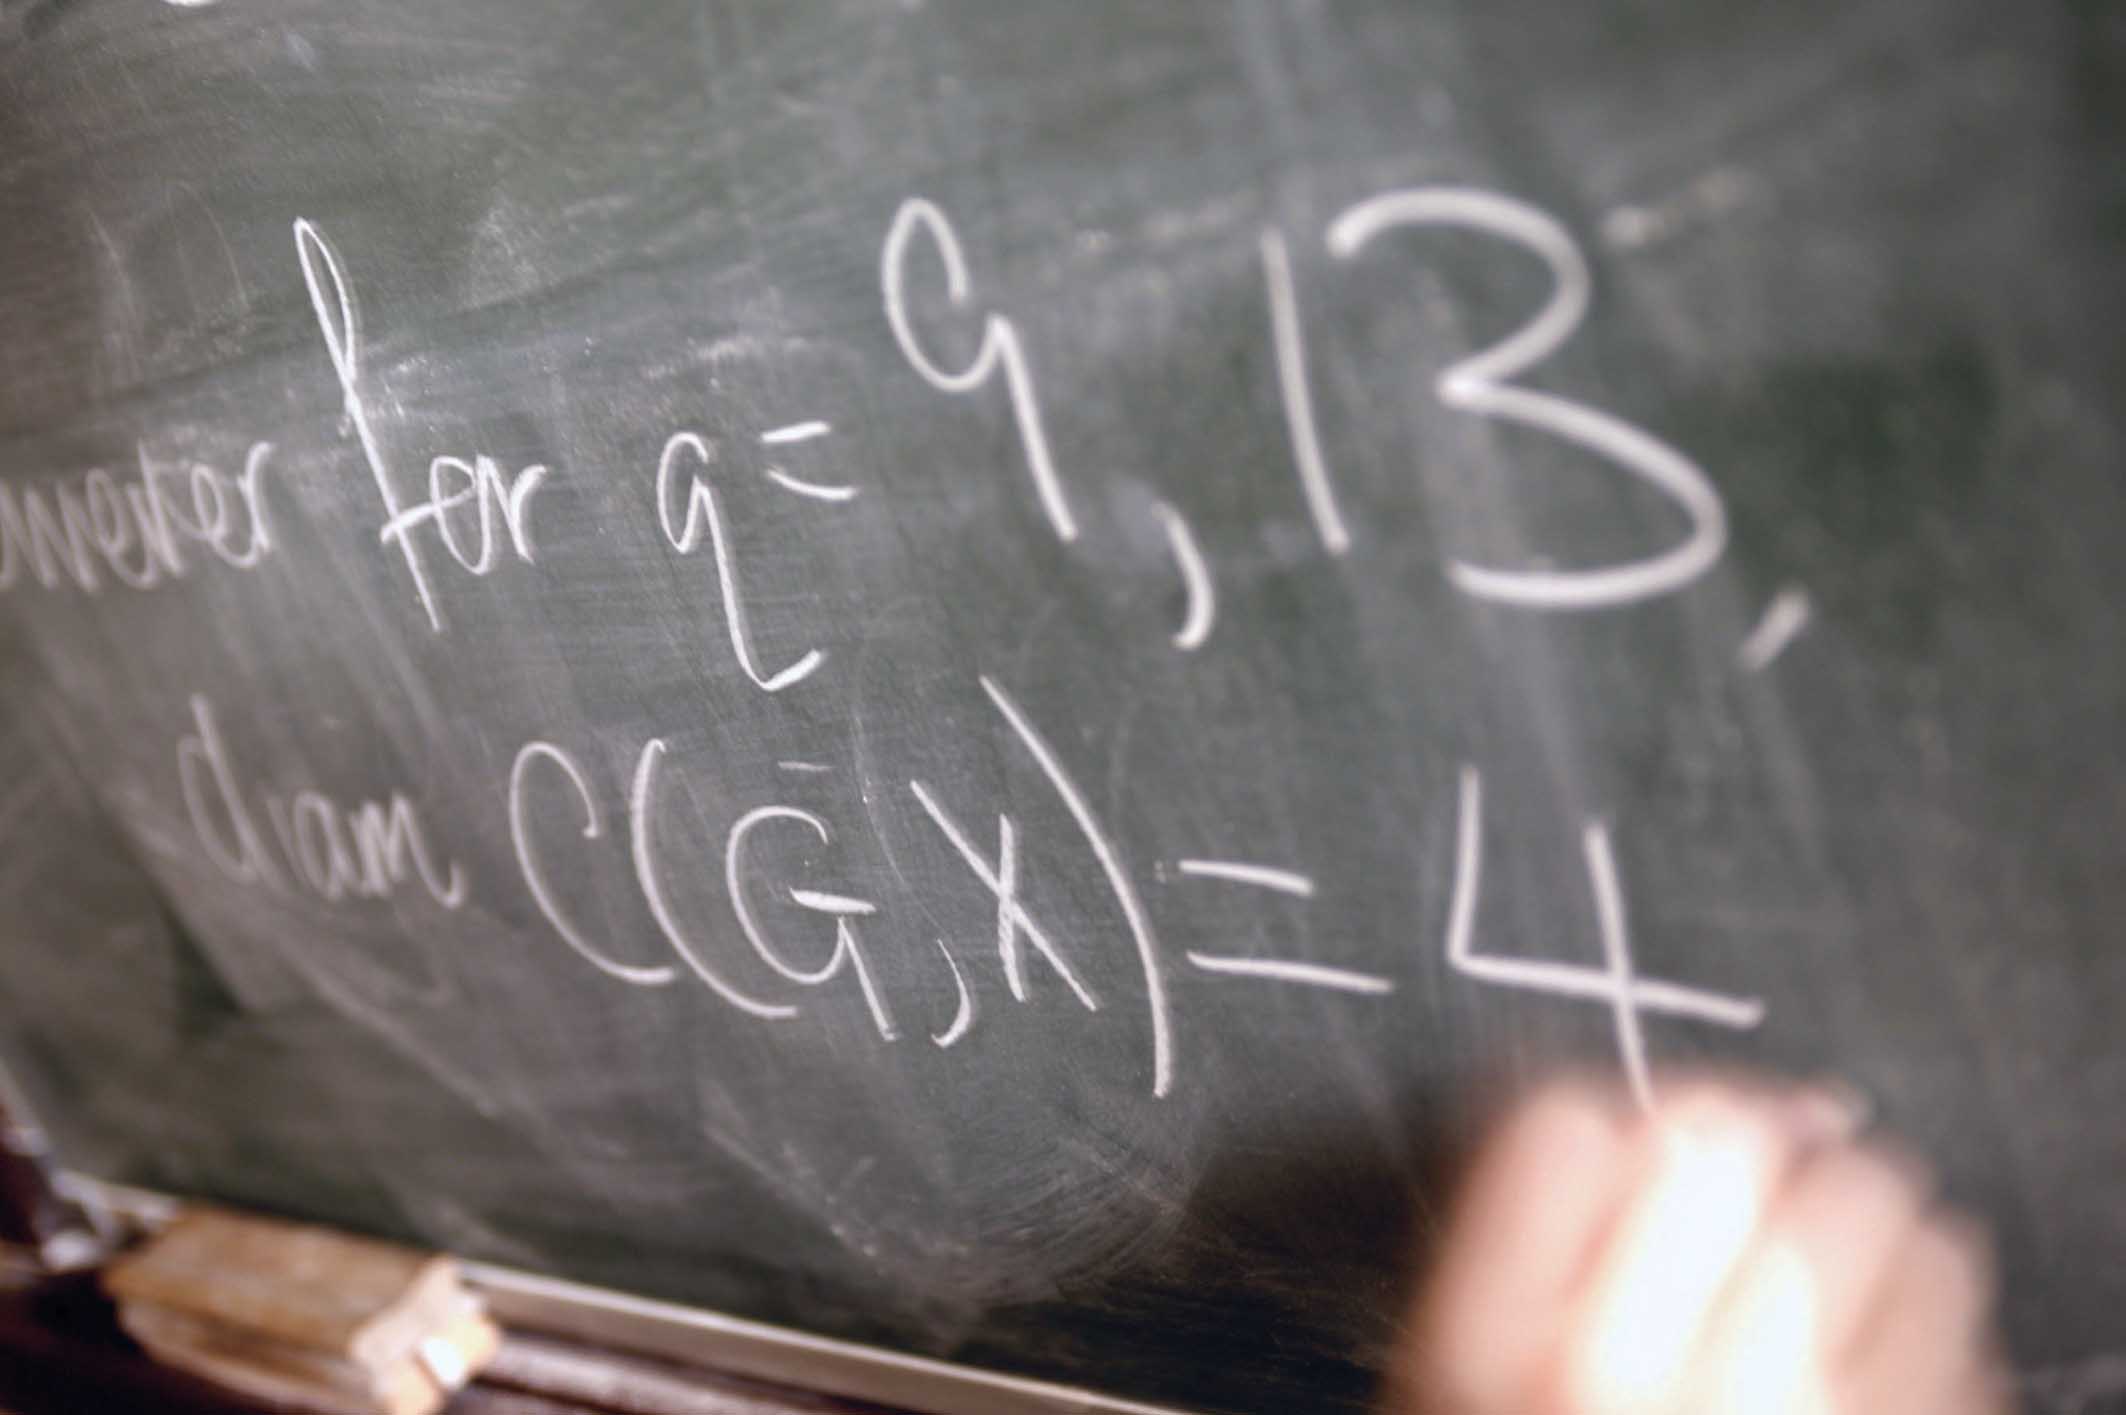 owever for q = 9, 13,
diam C(G, X) = 4